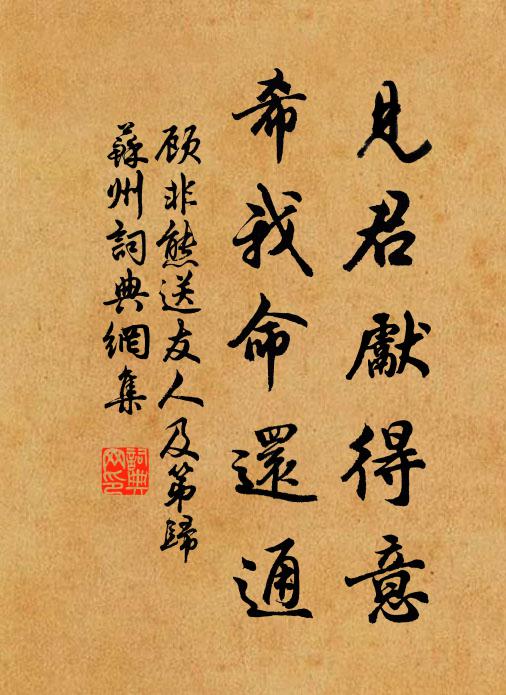 見君獻得意
希我命還通
顾非熊送友人及第歸
蘇州詞典網集
詞典
网印